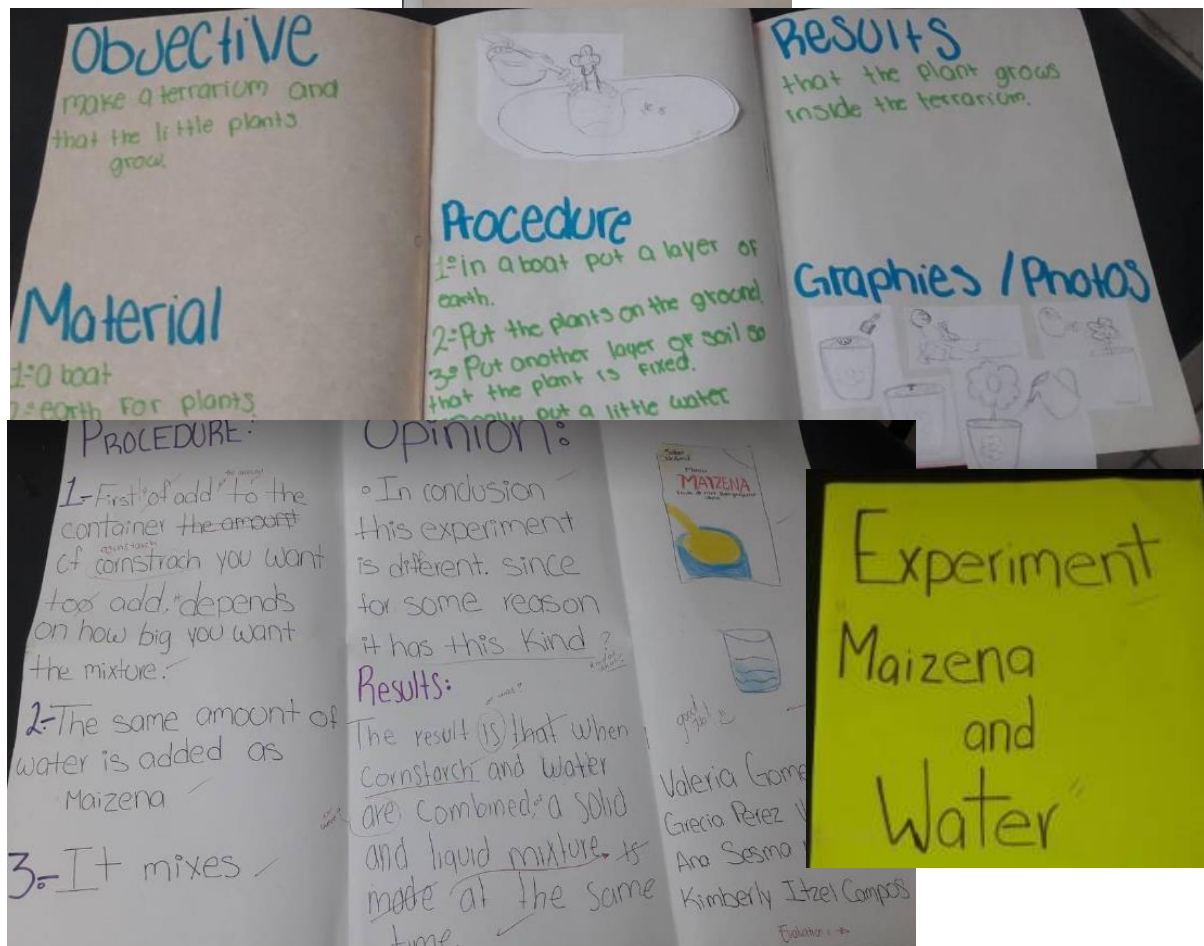 Objective
make a terrarium and
that the little plants
grow.
Material
1º a boat
2º earth For plants
Procedure
1º in a boat put a layer of
earth.
2º Put the plants on the ground.
3º Put another layer of soil so
that the plant is fixed.
put a little water
Results
that the plant grows
inside the terrarium.
Graphies / Photos
PROCEDURE:
1.- First, of add to the
container the amount
of cornstrach you want
too add, depends
on how big you want
the mixture.
2.- The same amount of
water is added as
Maizena
3.- It mixes
Opinion:
In conclusion
this experiment
is different. since
for some reason
it has this Kind ?
Results:
The result is that when
cornstarch and water
are combined, a solid
and liquid mixture. is
made at the same
time.
MAIZENA
good
job!
Valeria Gome
Grecia Perez
Ana Sesma
Kimberly Itzel Campos
Evaluation:
Experiment
Maizena
and
Water